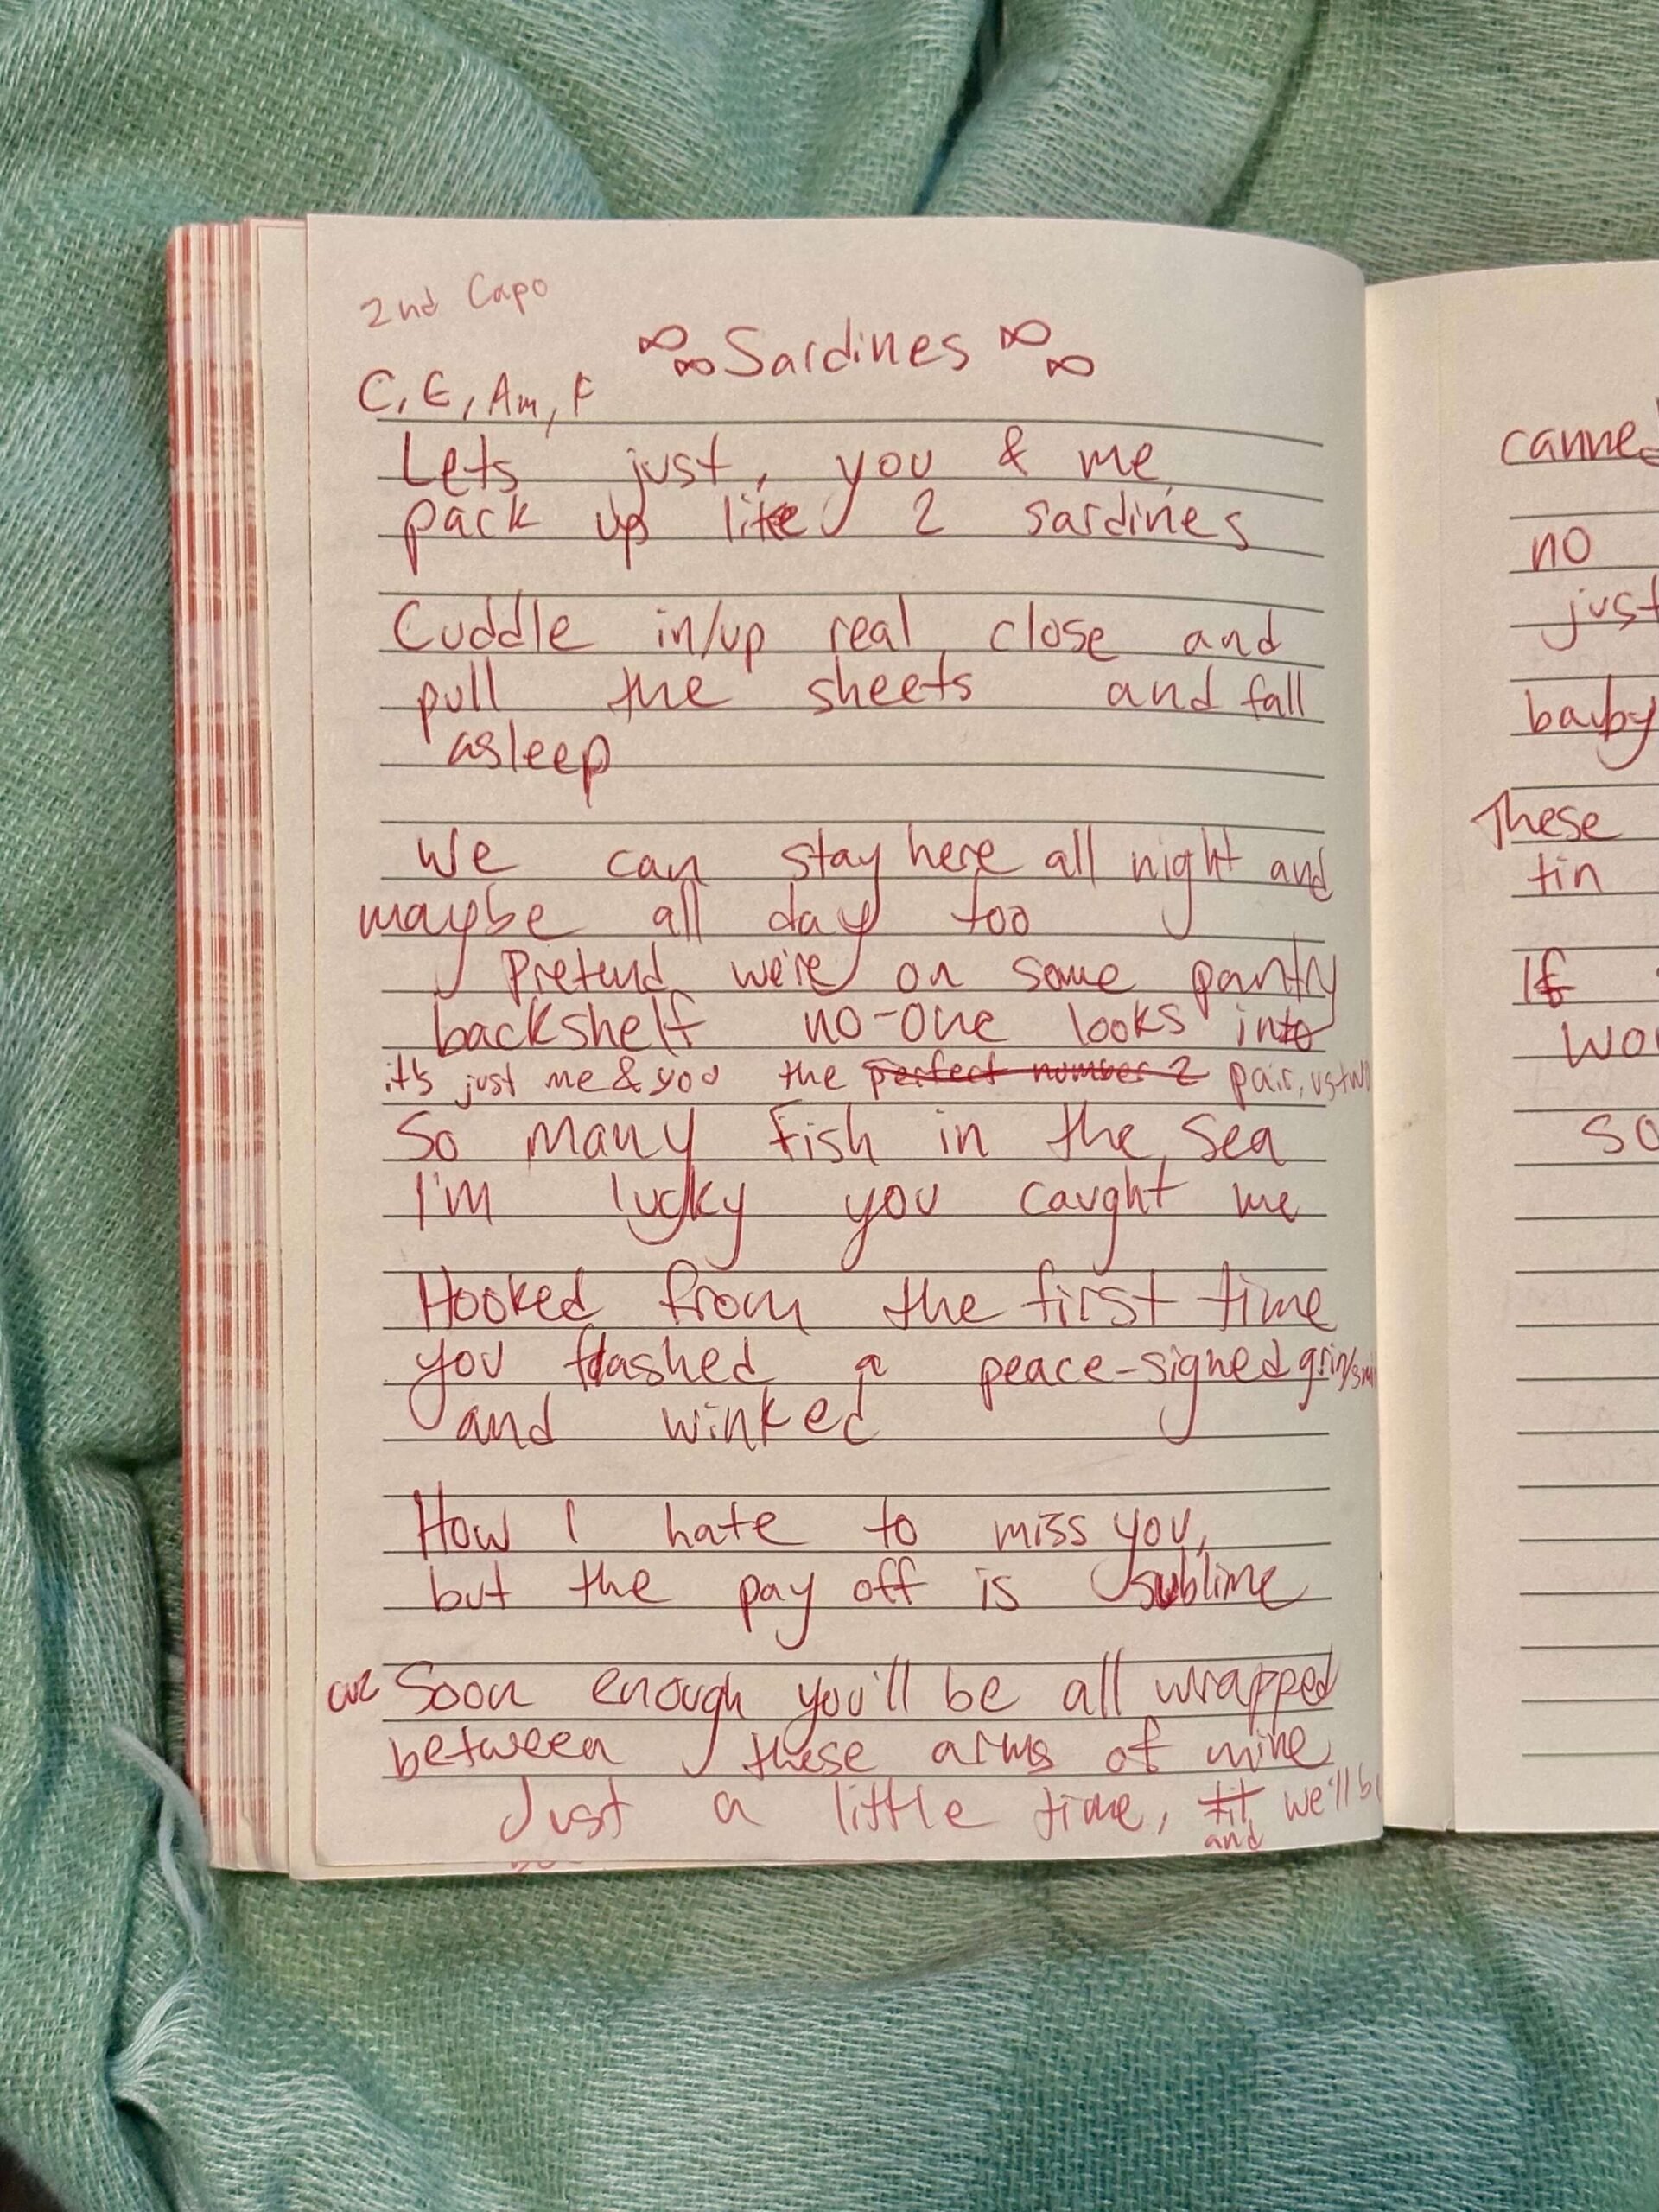 2nd Capo
Sardines
C, E, Am, F
Lets just, you & me,
pack up like 2 sardines
Cuddle in/up real close and
pull the sheets and fall
asleep
We can stay here all night and
maybe all day too
Pretend we're on some pantry
backshelf no-one looks into
it's just me & you the perfect number 2 pair, us two
So many fish in the sea
I'm lucky you caught me
Hooked from the first time
you flashed a peace-signed grin/
and winked
How I hate to miss you,
but the pay off is sublime
cuz Soon enough you'll be all wrapped
between these arms of mine
Just a little time, we'll
and
canned
no
just
baby
These
tin
If